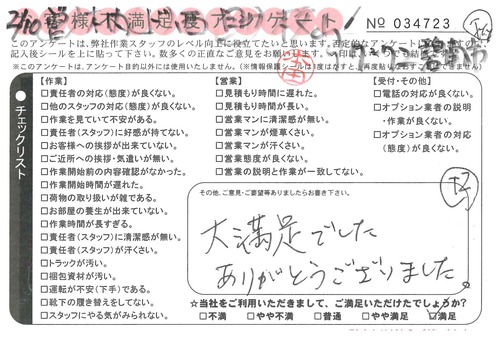 お客様不満足度アンケート
No 034723
このアンケートは、弊社作業スタッフのレベル向上に役立てたいと思います。否定的なアンケート
記入後シールを上に貼って下さい。数多くの正直な意見をお待ちしております。
※このアンケートは、アンケート目的以外には使用いたしません。(※情報保護シールは1度はなすと、再度貼りなおす
チェックリスト
【作業】
□責任者の対応(態度)が良くない。
□他のスタッフの対応(態度)が良くない。
□作業を見ていて不安がある。
□責任者(スタッフ)に好感が持てない。
□お客様への挨拶が出来ていない。
□ご近所への挨拶・気遣いが無い。
□作業開始前の内容確認がなかった。
□作業開始時間が遅れた。
□荷物の取り扱いが雑である。
□お部屋の養生が出来ていない。
□作業時間が長すぎる。
□責任者(スタッフ)に清潔感が無い。
□責任者(スタッフ)が汗くさい。
□トラックが汚い。
□梱包資材が汚い。
□運転が不安(下手)である。
□靴下の履き替えをしてない。
□スタッフにやる気がみられない。
【営業】
□見積もり時間に遅れた。
□見積もり時間が長い。
□営業マンに清潔感が無い。
□営業マンが煙草くさい。
□営業マンが汗くさい。
□営業態度が良くない。
□営業の説明と作業が一致してない。
【受付・その他】
□電話の対応が良くない。
□オプション業者の説明
・作業が良くない。
□オプション業者の対応
(態度)が良くない。
その他、ご意見・ご要望等ありましたらお書き下さい。
大満足でした
ありがとうございました。
☆当社をご利用いただきまして、ご満足いただけたでしょうか?
□不満 □やや不満 □普通 □やや満足 □満足